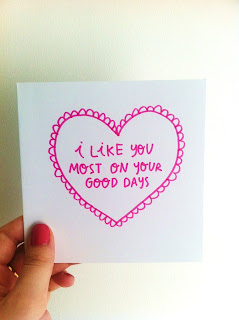 i LiKE YOU
MOST ON YOUR
GOOD DAYS